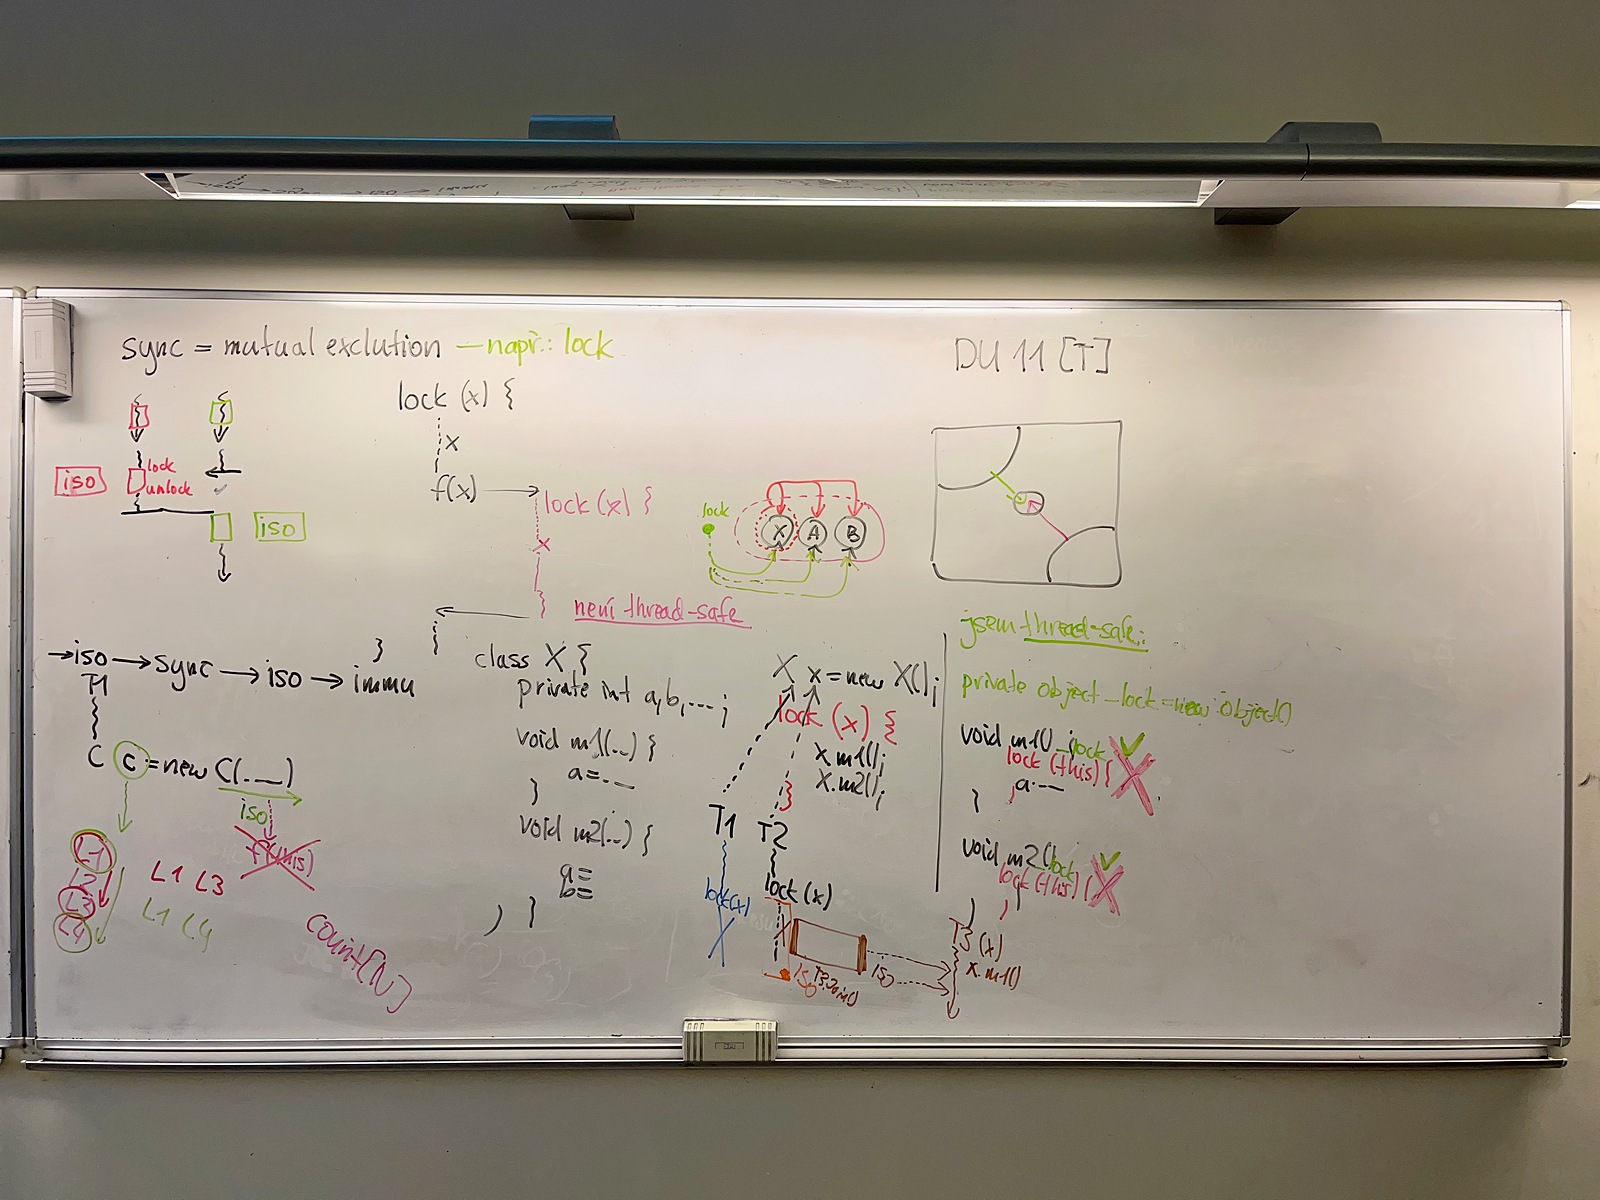 sync = mutual exclution — např.: lock
DU 11 [T]
lock (x) {
x
f(x)
lock
unlock
iso
iso
lock (x) {
x
}
není thread-safe
lock
X A B
}
→iso → sync → iso → immu
T1
C c = new C(.__)
iso
f(this)
L1
L2
L3
L4
L1 L3
L1 L4
count[N]
class X {
private int a,b,...;
void m1(..) {
a=.__
}
void m2(..) {
a=
b=
}
}
X x = new X();
lock (x) {
x.m1();
x.m2();
}
T1 T2
lock(x)
lock (x)
Iso
T3.Join()
Iso
T3 (x)
x.m1()
jsem thread-safe:
private object _lock = new object()
void m1() _lock
lock (this) {
a.__
}
}
void m2() lock
lock (this) {
}
}